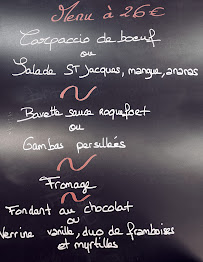 Menu à 26€
Carpaccio de boeuf
ou
Salade ST Jacques, mangue, ananas
Bavette sauce roquefort
ou
Gambas persillées
Fromage
Fondant au chocolat
ou
Verrine vanille, duo de framboises
et myrtilles